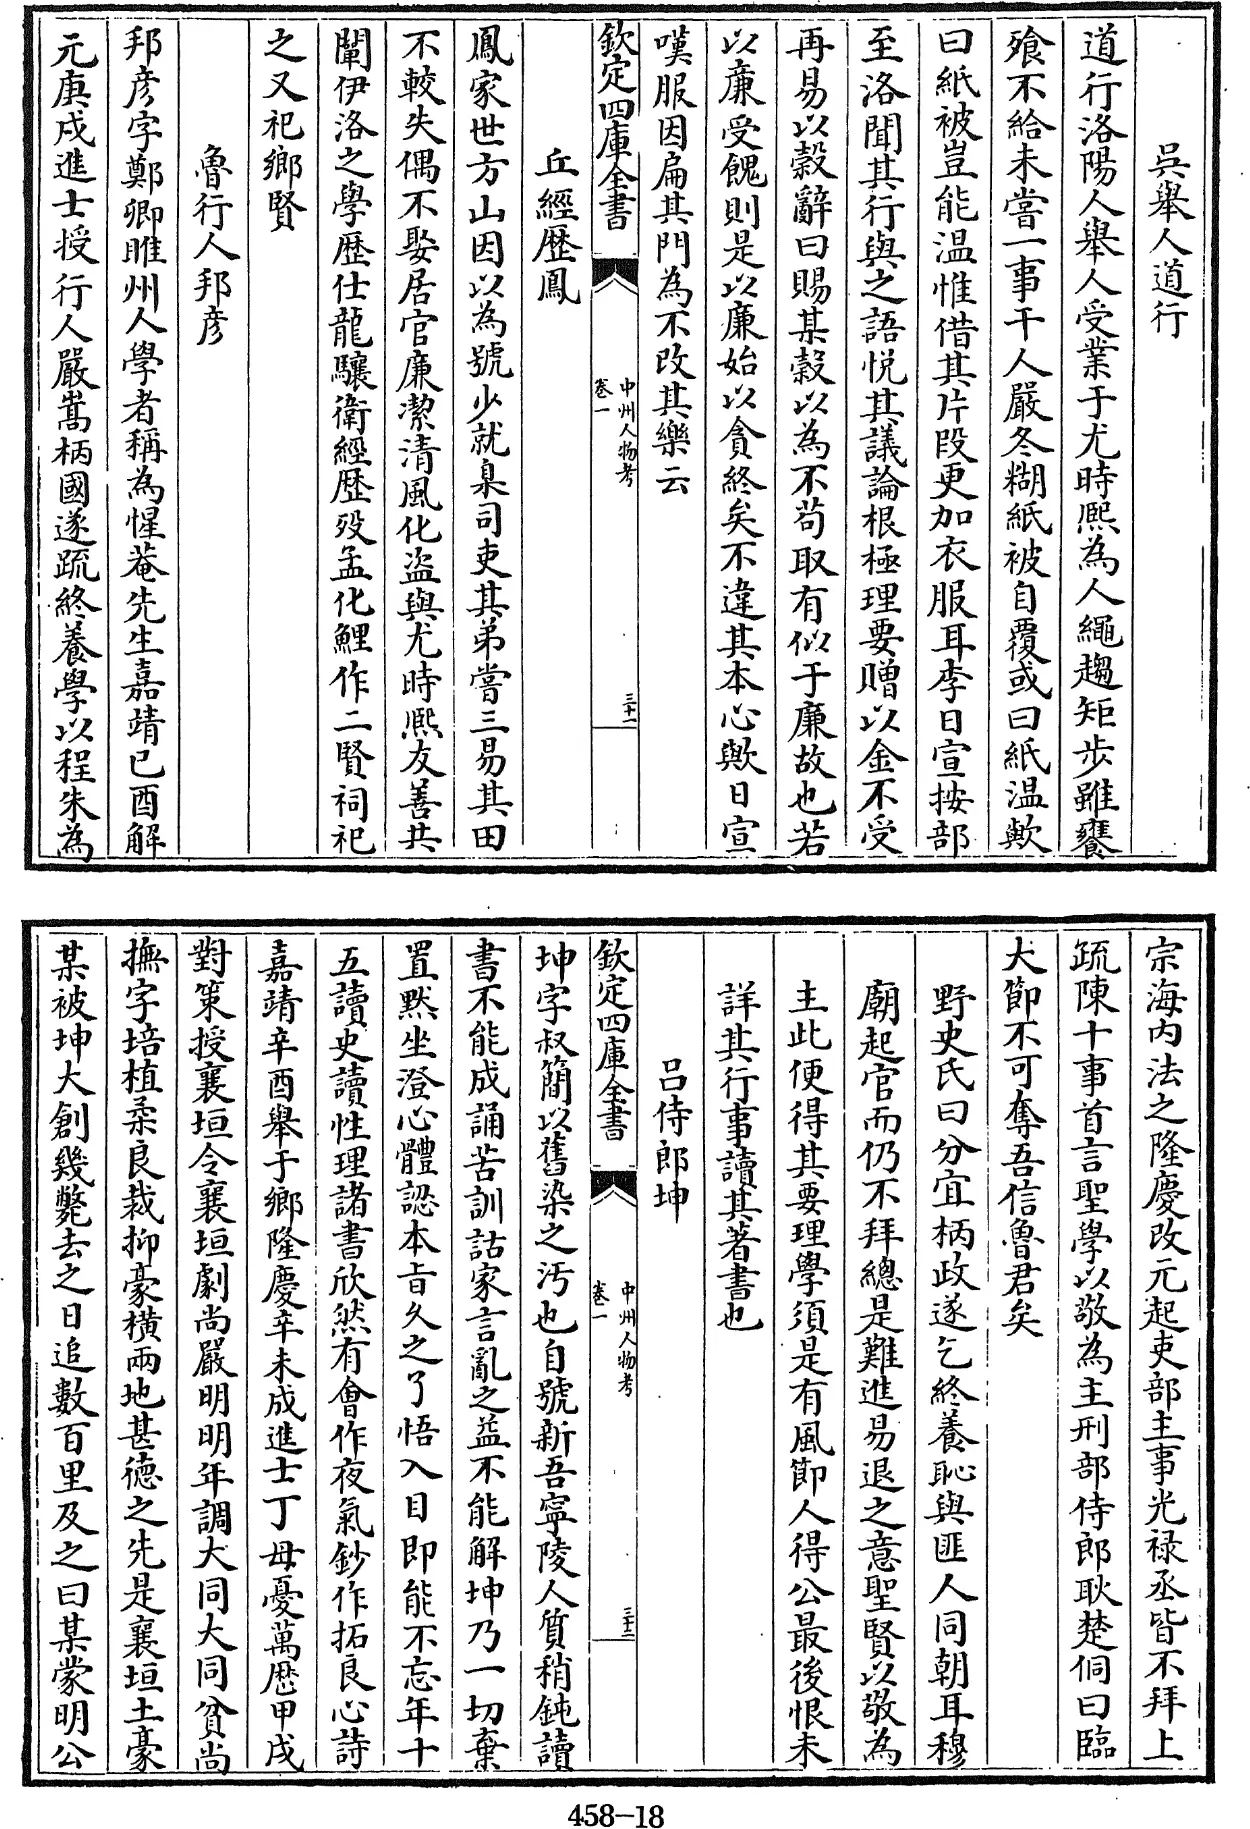 吳舉人道行
道行洛陽人舉人受業于尤時熈為人繩趨矩步雖饔
飱不給未嘗一事干人嚴冬糊紙被自覆或曰紙温歟
曰紙被豈能温惟借其片段更加衣服耳李日宣按部
至洛聞其行與之語悦其議論根極理要贈以金不受
再易以穀辭曰賜某穀以為不茍取有似于廉故也若
以廉受餽則是以廉始以貪終矣不違其本心歟日宣
嘆服因扁其門為不改其樂云
欽定四庫全書
中州人物考
卷一
三十一
丘經歴鳳
鳳家世方山因以為號少就臬司吏其弟嘗三易其田
不較失偶不娶居官廉潔清風化盗與尤時熈友善共
闡伊洛之學歴仕龍驤衛經歴殁孟化鯉作二賢祠祀
之又祀鄉賢
魯行人邦彦
邦彦字鄭卿睢州人學者稱為惺菴先生嘉靖已酉解
元庚戌進士授行人嚴嵩柄國遂疏終養學以程朱為
宗海内法之隆慶改元起吏部主事光禄丞皆不拜上
疏陳十事首言聖學以敬為主刑部侍郎耿楚侗曰臨
大節不可奪吾信魯君矣
野史氏曰分宜柄政遂乞終養恥與匪人同朝耳穆
廟起官而仍不拜總是難進易退之意聖賢以敬為
主此便得其要理學須是有風節人得公最後恨未
詳其行事讀其著書也
吕侍郎坤
欽定四庫全書
中州人物考
卷一
三十二
坤字叔簡以舊染之汚也自號新吾寧陵人質稍鈍讀
書不能成誦苦訓詁家言亂之益不能解坤乃一切棄
置默坐澄心體認本旨久之了悟入目即能不忘年十
五讀史讀性理諸書欣然有會作夜氣鈔作拓良心詩
嘉靖辛酉舉于鄉隆慶辛未成進士丁母憂萬歴甲戌
對策授襄垣令襄垣劇尚嚴明明年調大同大同貧尚
撫字培植柔良裁抑豪横兩地甚徳之先是襄垣土豪
某被坤大創幾斃去之日追數百里及之曰某蒙明公
458-18